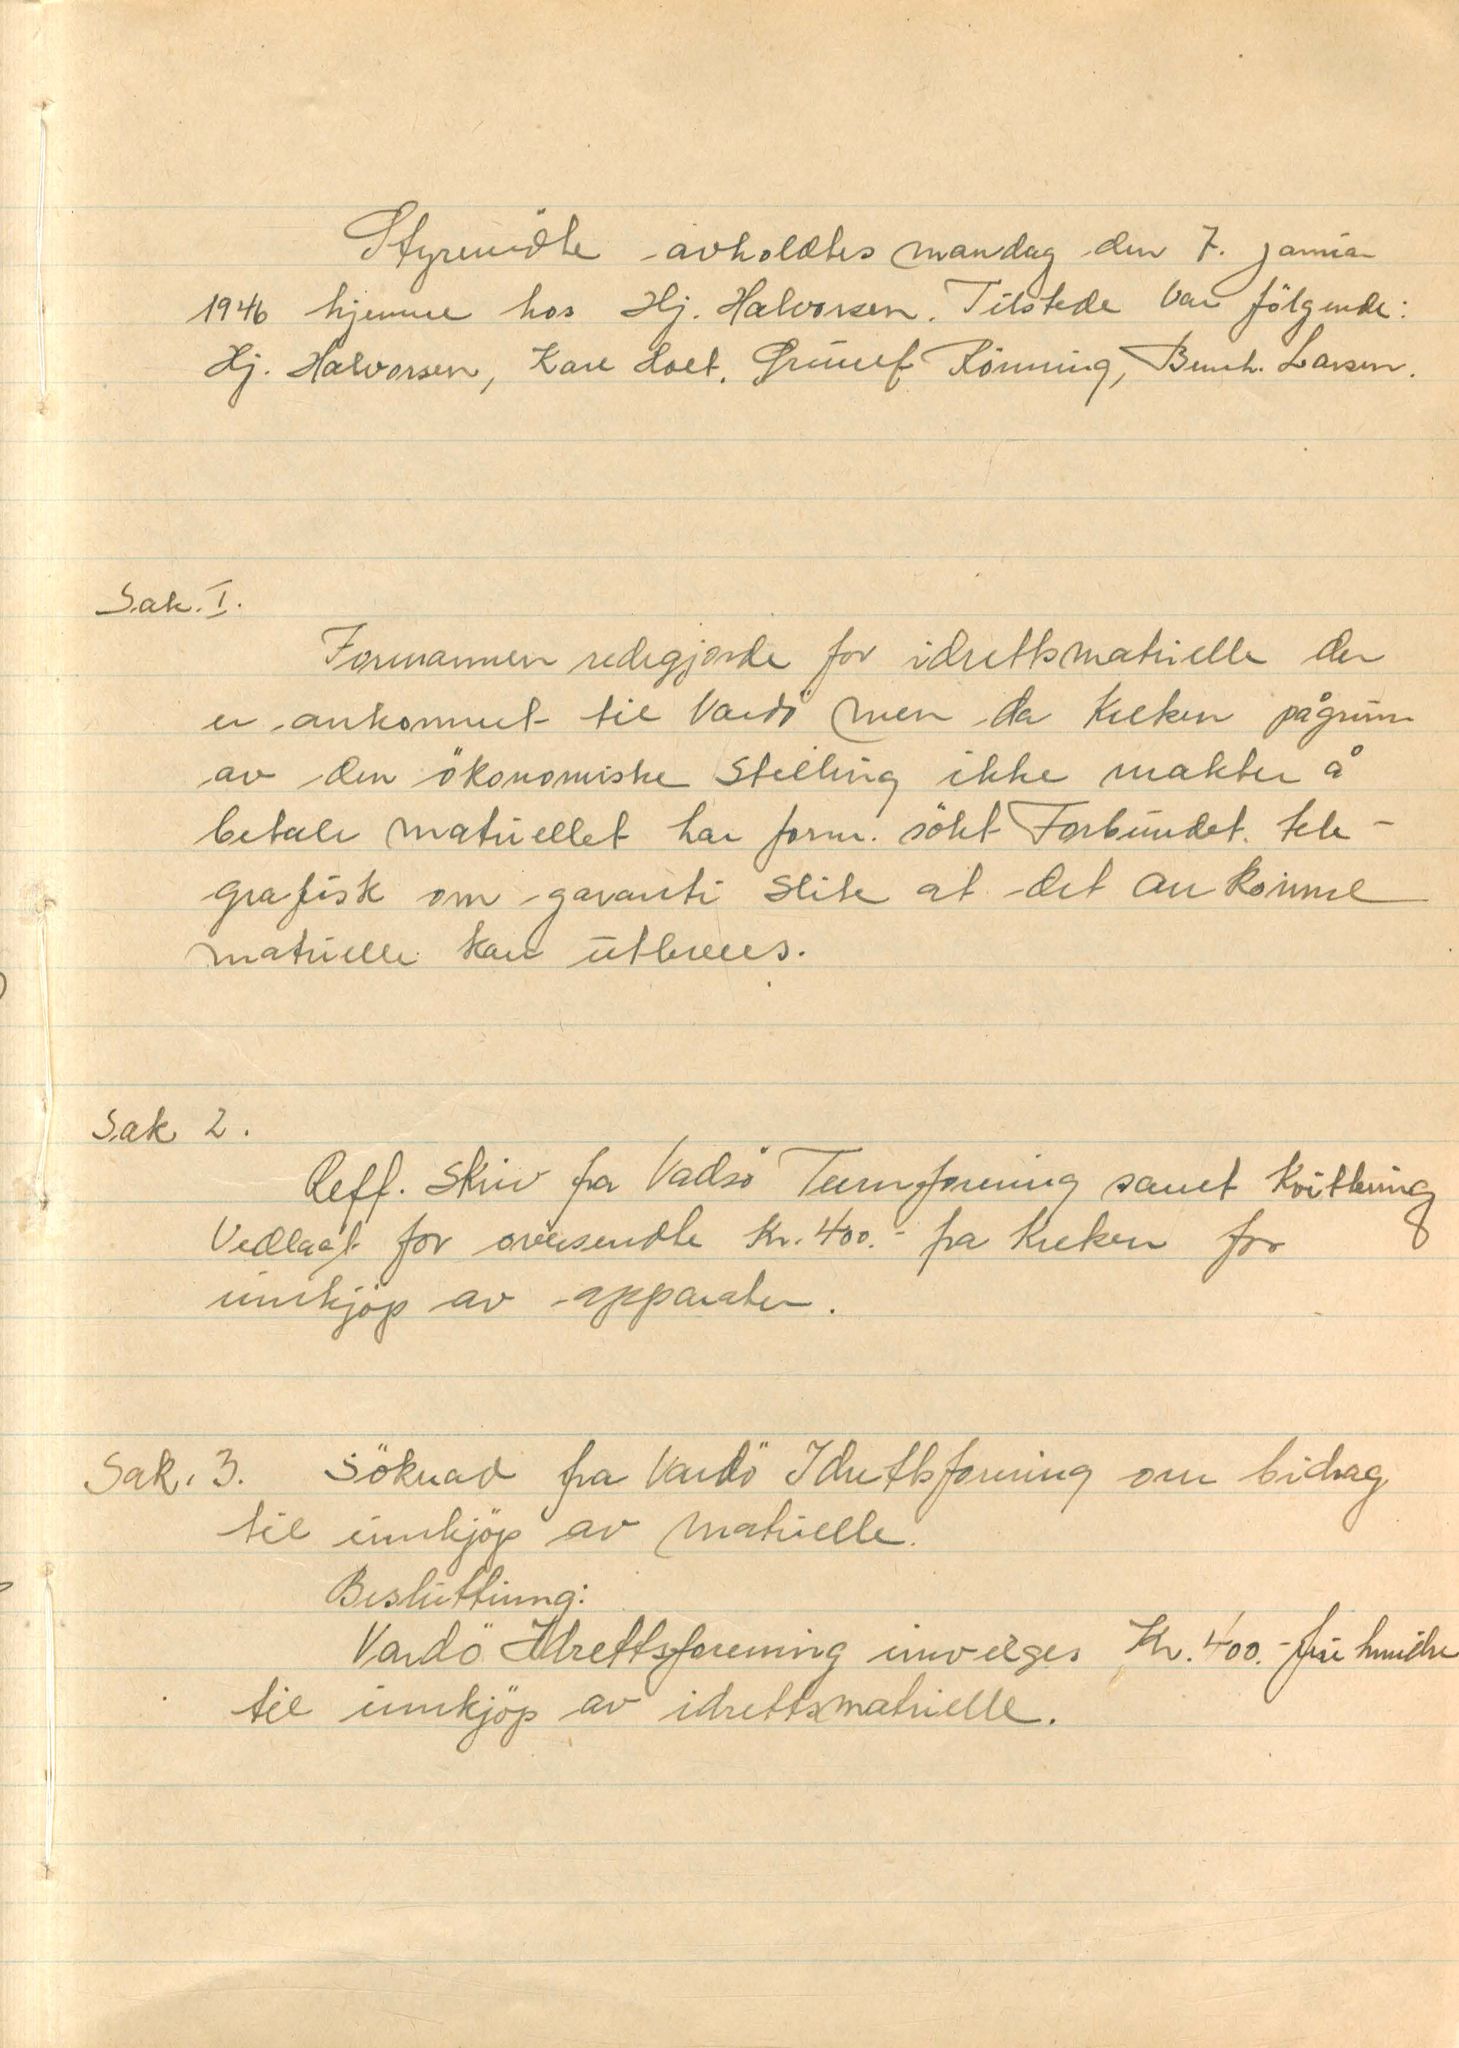 Styremöte avholdtes mandag den 7. januar
1946 hjemme hos Hj. Halvorsen. Tilstede var fölgende:
Hj. Halvorsen, Kåre Holt, Rönning, Bernh. Larsen.
Sak. I.
Formannen redegjorde for idrettsmatrielle der
er ankommet til Vardö men da Kretsen pågrunn
av den ökonomiske Stelling ikke makter å
betale matriellet har form. sökt Forbundet tele-
grafisk om garanti slik at det ankomne
matrielle kan utleveres.
Sak 2.
Reff. Skriv fra Vadsö Turnforening samt Kvittering
Vedlagt for oversendte Kr. 400.- fra Kretsen for
innkjöp av apparater.
Sak. 3. Söknad fra Vardö Idrettsforening om bidrag
til innkjöp av matrielle.
Besluttning:
Vardö Idrettsforening innvilges Kr. 400.- fire hundre
til innkjöp av idrettsmatrielle.